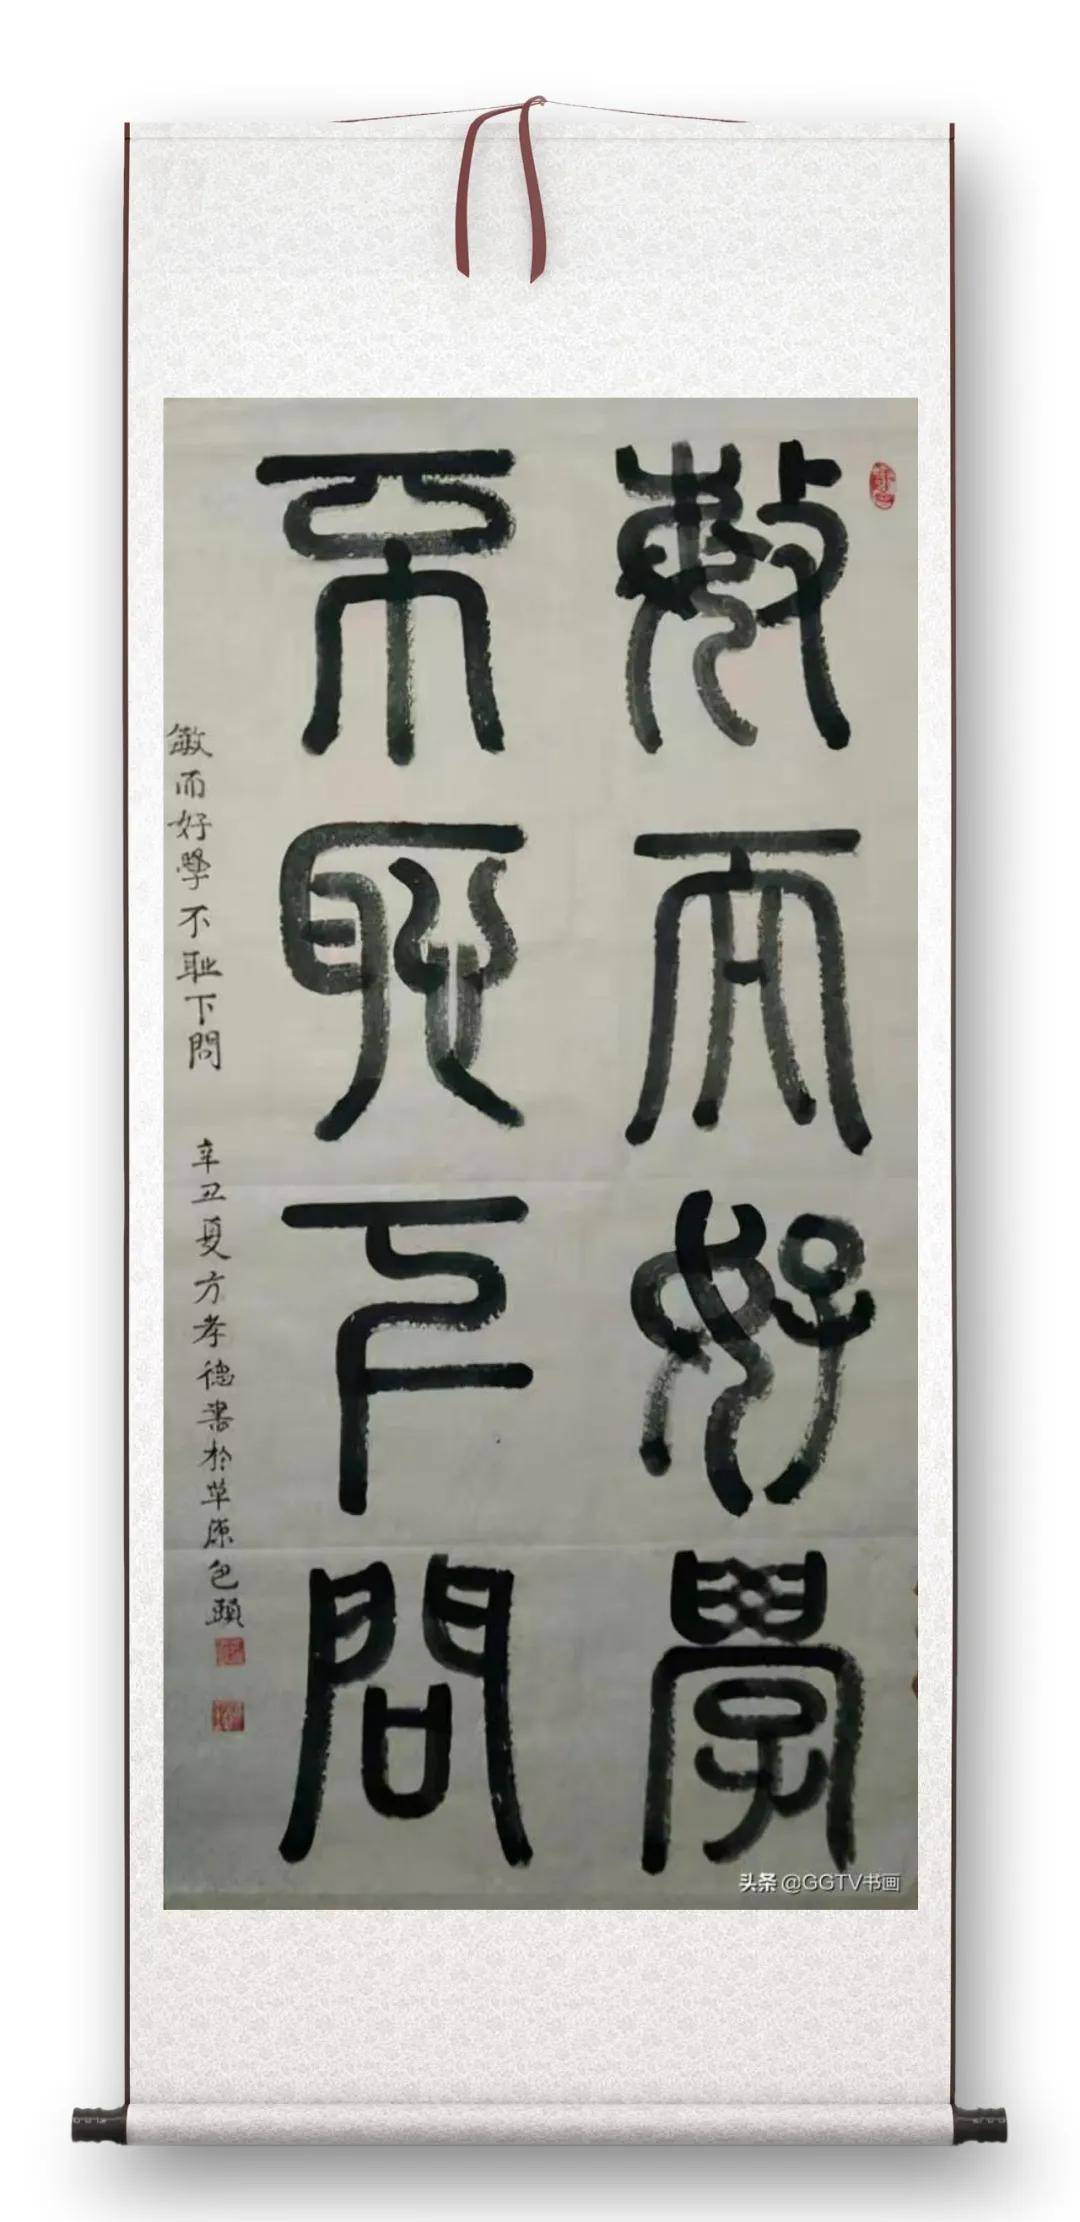 敏而好學
不恥下問
敏而好學不耻下問 辛丑夏方孝德書於草原包頭
头条 @GGTV书画